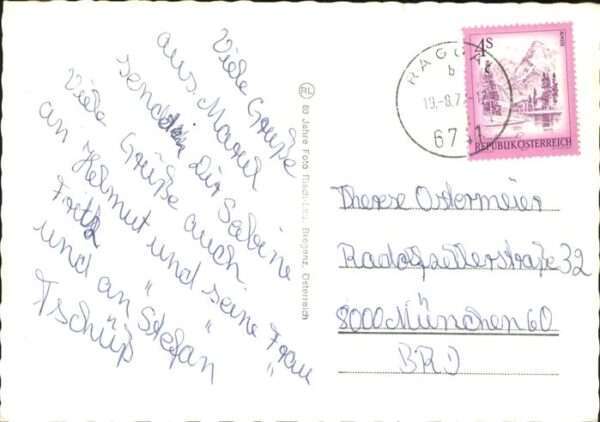 Viele Grüße
aus Marul
senden dir Sabine
Viele Grüße auch
an Helmut und seine Frau
Fritz " "
und an Stefan
Tschüß
RL
80 Jahre Foto Risch-Lau, Bregenz, Österreich
RAGGAL
b
19.-8.7
67 1
4S
REPUBLIK ÖSTERREICH
Therese Ostermeier
Radolfzellerstraße 32
8000 München 60
BRD